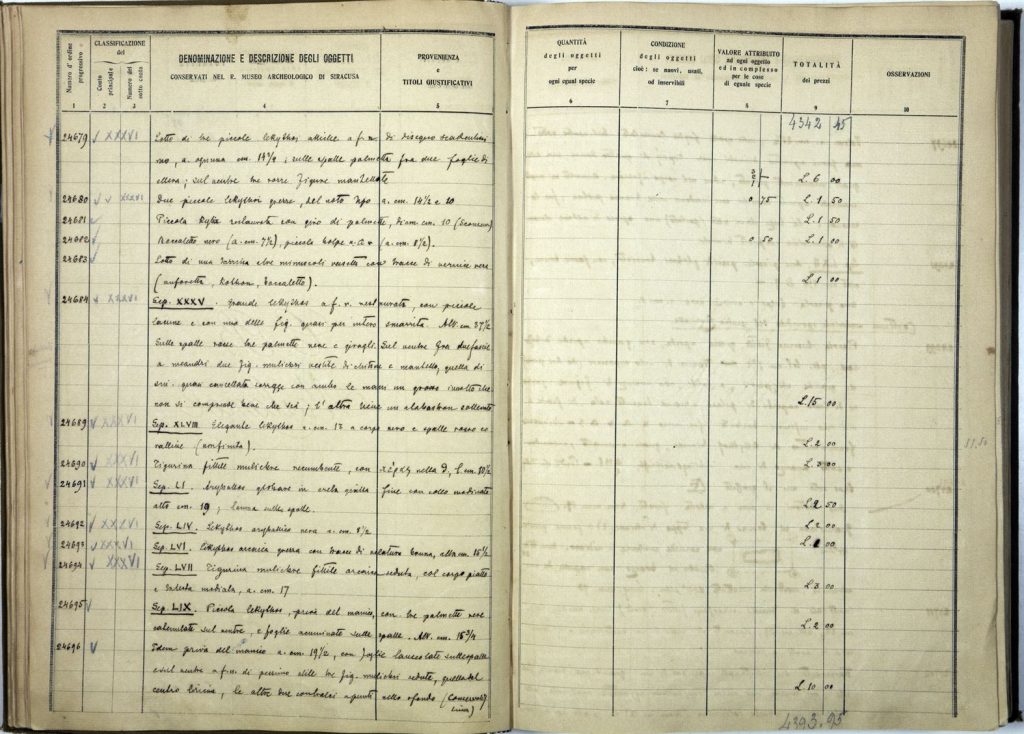 Numero d'ordine progressivo
CLASSIFICAZIONE
del
Conto principale
Numero del sotto conto
DENOMINAZIONE E DESCRIZIONE DEGLI OGGETTI
CONSERVATI NEL R. MUSEO ARCHEOLOGICO DI SIRACUSA
PROVENIENZA
e
TITOLI GIUSTIFICATIVI
QUANTITÀ
degli oggetti
per
ogni egual specie
CONDIZIONE
degli oggetti
cioè: se nuovi, usati,
od inservibili
VALORE ATTRIBUITO
ad ogni oggetto
ed in complesso
per le cose
di eguale specie
TOTALITÀ
dei prezzi
OSSERVAZIONI
1 2 3 4 5 6 7 8 9 10
4342 45
24679 XXXVI Lotto di tre piccole lekythoi attiche a f. n. di disegno
a. ognuna cm. 14 3/4; sulle spalle palmetta fra due foglie di
ellera; sul ventre tre rozze figure mantellate L. 6 00
24680 XXXVI Due piccole lekythoi, del noto tipo a. cm. 14 1/2 e 10 0 75 L. 1 50
24681 Piccola kylix restaurata con giro di palmette, diam. cm. 10 L. 1 50
24682 Boccaletto nero (a. cm. 7 1/2), piccola (a. cm. 8 1/2). 0 50 L. 1 00
24683 Lotto di una tazzina e tre minuscoli vasetti con tracce di vernice nera
(anforetta, kothon, boccaletto). L. 1 00
24684 XXXVI Sep. XXXV. Grande lekythos a f. r. restaurata, con piccole
lacune e con una delle fig. quasi per intero smarrita. Alt. cm 37 1/2
Sulle spalle rosse tre palmette nere e giragli. Sul ventre fra due fascie
a meandri due fig. muliebri vestite di chitone e mantello, quella di
quasi cancellata sorregge con ambo le mani un grosso involto che
non si comprende bene che sia; l'altra tiene un alabastron L. 15 00
24689 XXXVI Sep. XLVIII Elegante lekythos a. cm. 17 a corpo nero e spalle rosso co-
rallino L. 2 00
24690 XXXVI Figurina fittile muliebre recumbente, con nella d, l. cm. 10 1/2 L. 3 00
24691 XXXVI Sep. LI. Aryballos globare in creta gialla fine con collo modinato
alto cm. 19; lacuna sulle spalle. L. 2 50
24692 XXXVI Sep. LIV. Lekythos aryballica nera a. cm. 8 1/2 L. 2 00
24693 XXXVI Sep. LVI. Lekythos arcaica con tracce di velatura bruna, alta cm. 15 1/2 L. 00
24694 XXXVI Sep. LVII Figurina muliebre fittile arcaica seduta, col corpo piatto
e testa modiata, a. cm. 17 L. 3 00
24695 Sep. LIX. Piccola lekythos, priva del manico, con tre palmette nere
sul ventre, e foglie acuminate sulle spalle. Alt. cm. 15 3/4 L. 2 00
24696 Idem priva del manico a. cm. 19 1/2, con foglie lanceolate sulle spalle
e sul ventre a f. n. di tre fig. muliebri sedute, quella del
centro, le altre due L. 10 00
51.50
4393.95